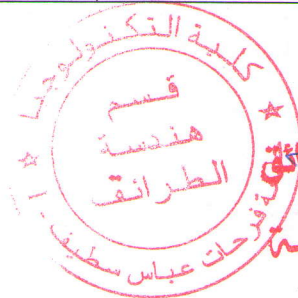 كلية التكنولوجيا
قسم
هندسة
الطرائق
فرحات عباس سطيف